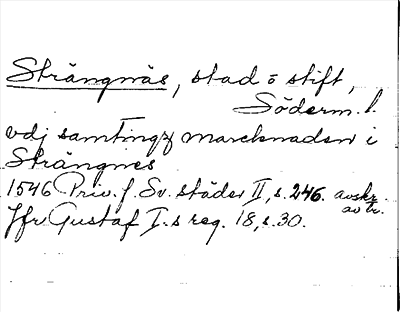 Strängnäs, stad o stift,
Söderm. l.
vdj samtingz marcknaden i
Strängnes
1546 Priv. f. Sv. städer II, s. 246. avskr.
av tr.
Jfr Gustaf I.s reg. 18, s. 30.